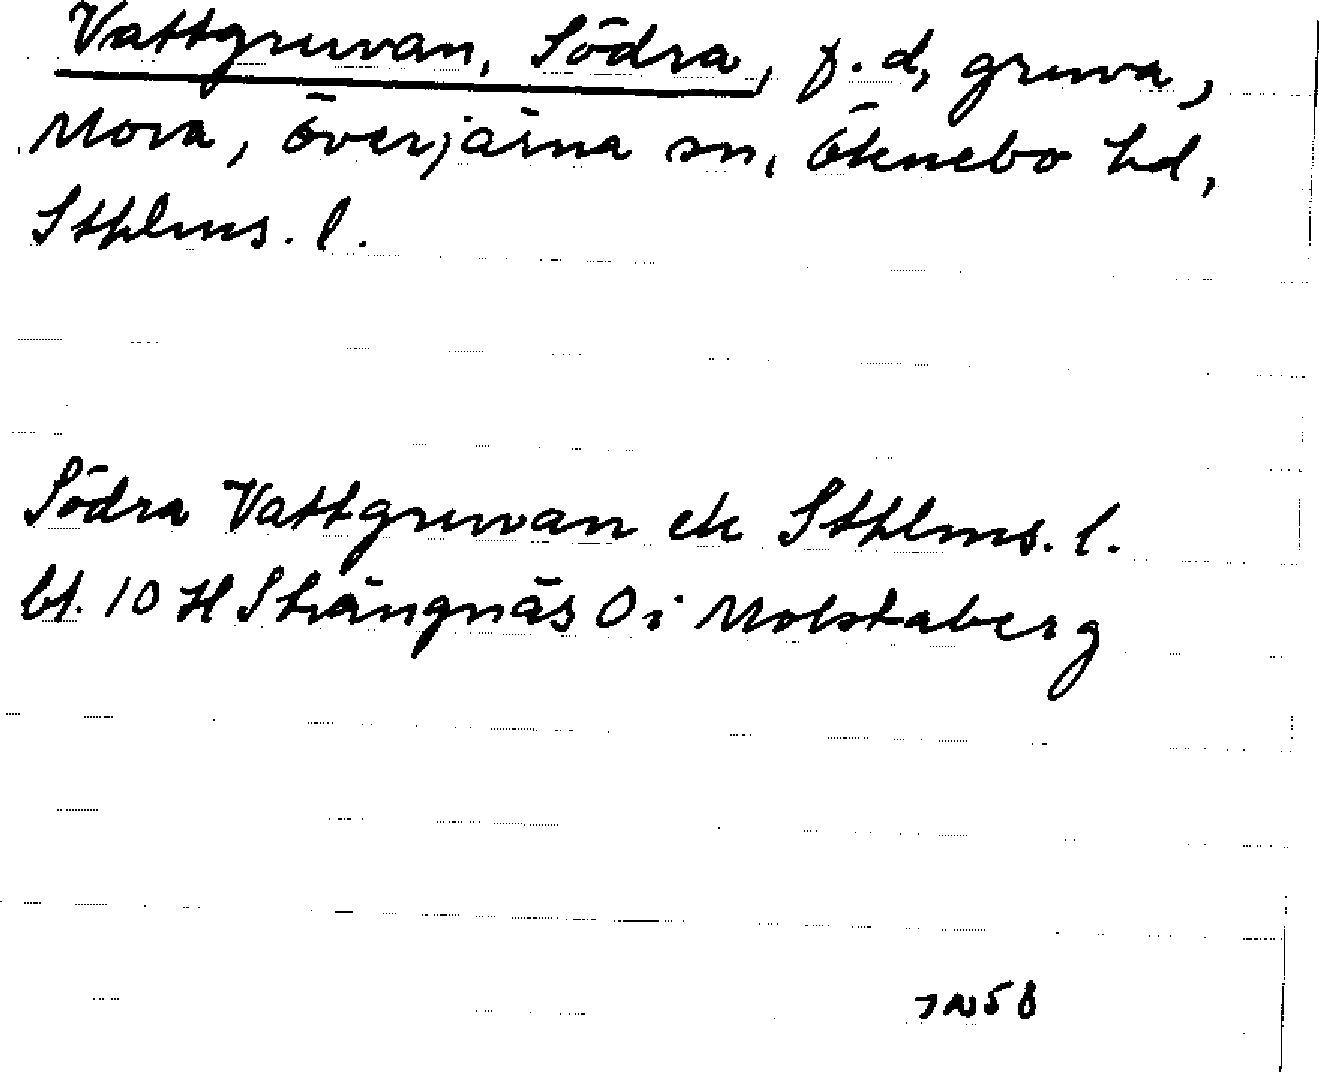 Vattgruvan, Södra, f.d. gruva,
Mora, Överjärna sn, Öknebo hd,
Sthlms. l.
Södra Vattgruvan ek Sthlms. l.
bl. 10 H Strängnäs O i Molstaberg